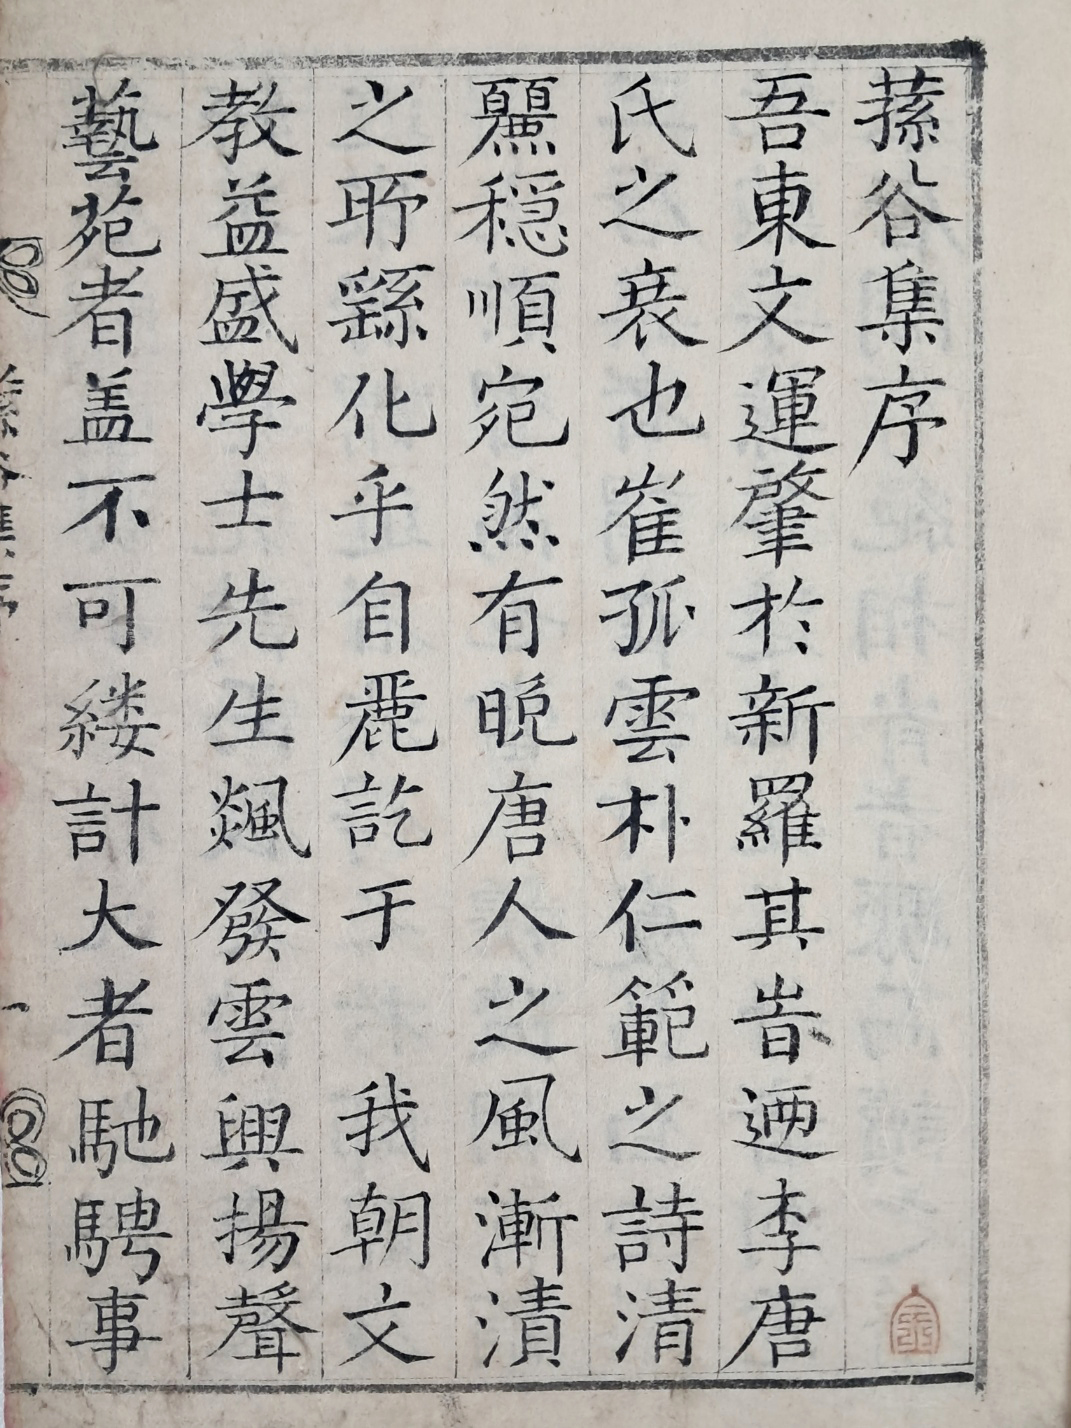 蓀谷集序
吾東文運肇於新羅其旹迺李唐
氏之衰也崔孤雲朴仁範之詩清
麗穏順宛然有晩唐人之風漸漬
之所繇化乎自麗訖于 我朝文
教益盛學士先生飈發雲興揚聲
藝苑者盖不可縷計大者馳騁事